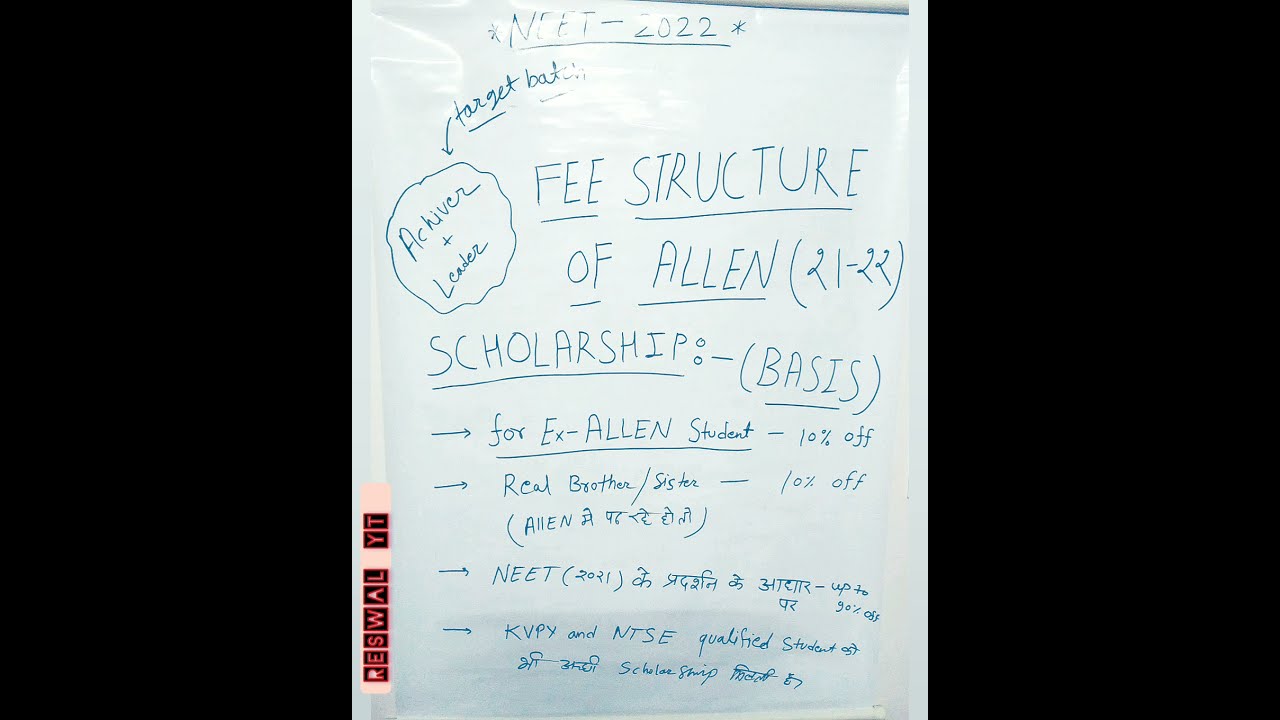 * NEET - 2022 *
target batch
Achiver
+
Leader
FEE STRUCTURE
OF ALLEN (21-22)
SCHOLARSHIP:- (BASIS)
→ for Ex-ALLEN Student - 10% off
→ Real Brother/Sister - 10% off
(AllEN मे पढ रहे हो तो)
→ NEET (2021) के प्रदर्शन के आधार - up to
पर 90% off
→ KVPY and NTSE qualified Student को
भी अच्छी Scholarship मिलती है
RESWAL YT